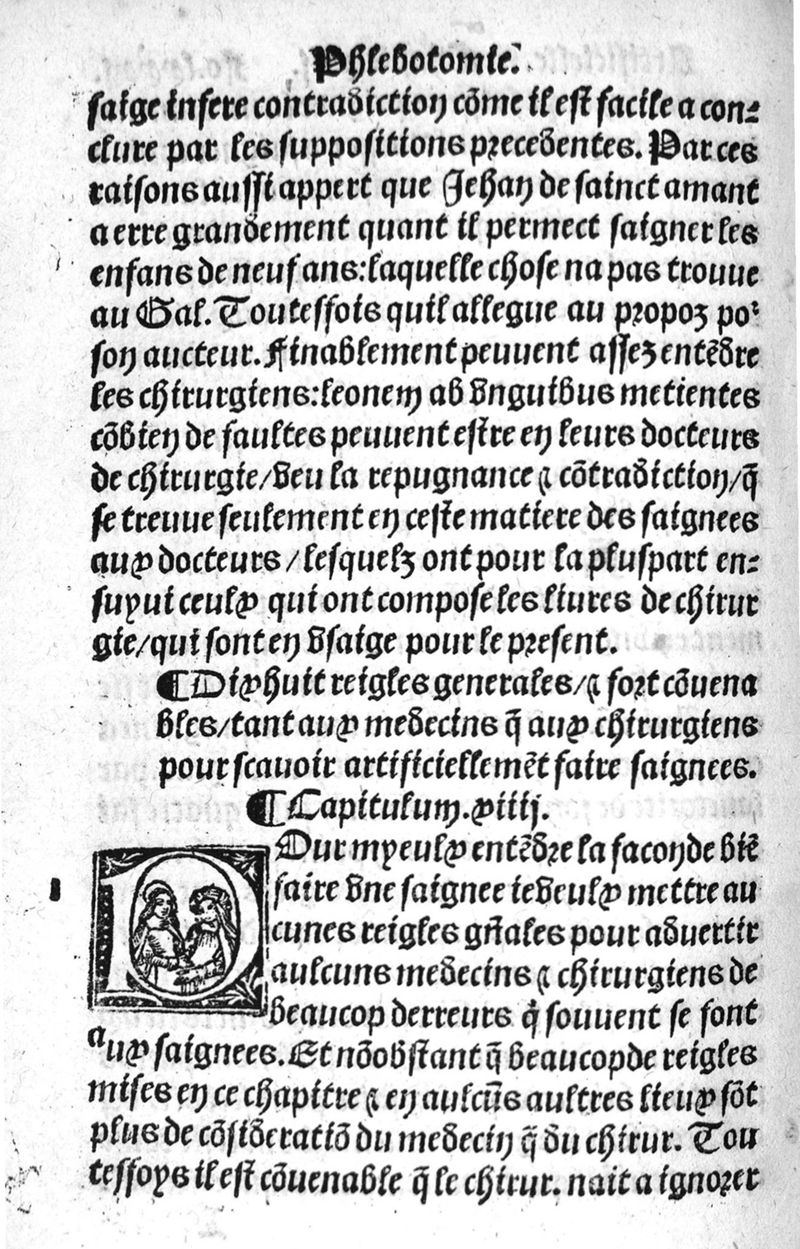 Phlebotomie.
saige infere contradiction cõme il est facile a con-
clure par les suppositions precedentes. Par ces
raisons aussi appert que Jehan de sainct amant
a erre grandement quant il permect saigner les
enfans de neuf ans:laquelle chose na pas trouue
au Gal. Toutessois quil allegue au propoz po²
son aucteur. Finablement peuuent assez entẽdre
les chirurgiens:leonem ab vnguibus metientes
cõbien de faultes peuuent estre en leurs docteurs
de chirurgie/veu la repugnance ⁊ cõtradiction/q̃
se treuue seulement en ceste matiere des saignees
aux docteurs/lesquelz ont pour la pluspart en-
suyui ceulx qui ont compose les liures de chirur
gie/qui sont en vsaige pour le present.
¶Dixhuit reigles generales/⁊ fort cõuena
bles/tant aux medecins q̃ aux chirurgiens
pour scauoir artificiellemẽt faire saignees.
¶Capitulum.xiiij.
POur myeulx entẽdre la facon de biẽ
faire vne saignee ie veulx mettre au
cunes reigles gñales pour aduertir
aulcuns medecins ⁊ chirurgiens de
beaucop derreurs q̇ souuent se font
aux saignees. Et nõobstant q̃ beaucop de reigles
mises en ce chapitre ⁊ en aulcũs aultres lieux sõt
plus de cõsideratiõ du medecin q̃ du chirur. Tou
tessoys il est cõuenable q̃ le chirur. nait a ignorer